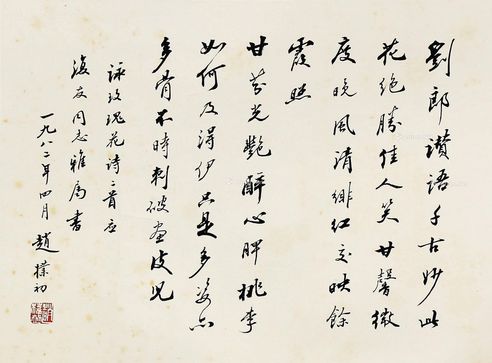 劉郎讚語千古妙此
花绝勝佳人笑甘馨徹
度晚风清绯红交映餘
霞照
甘芳光艷醉心脾桃李
如何及得伊只是多姿亦
多骨不時刺破画皮儿
詠玫瑰花诗二首应
友同志雅属书
一九八二年四月 趙樸初